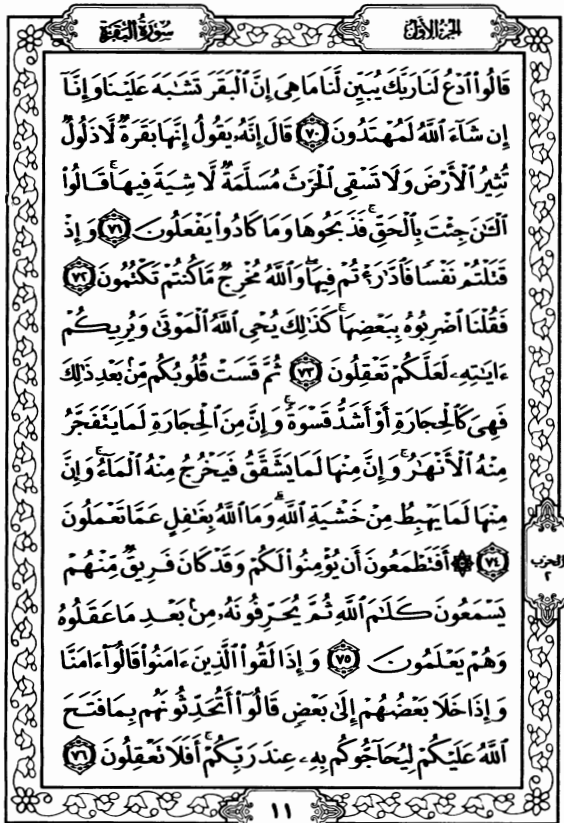 سُورَةُ البَقَرَةِ
الجزء الأول
قَالُوا۟ ٱدْعُ لَنَا رَبَّكَ يُبَيِّن لَّنَا مَا هِىَ إِنَّ ٱلْبَقَرَ تَشَٰبَهَ عَلَيْنَا وَإِنَّآ
إِن شَآءَ ٱللَّهُ لَمُهْتَدُونَ ٧٠ قَالَ إِنَّهُۥ يَقُولُ إِنَّهَا بَقَرَةٌ لَّا ذَلُولٌ
تُثِيرُ ٱلْأَرْضَ وَلَا تَسْقِى ٱلْحَرْثَ مُسَلَّمَةٌ لَّا شِيَةَ فِيهَا ۚ قَالُوا۟
ٱلْـَٰٔنَ جِئْتَ بِٱلْحَقِّ ۚ فَذَبَحُوهَا وَمَا كَادُوا۟ يَفْعَلُونَ ٧١ وَإِذْ
قَتَلْتُمْ نَفْسًا فَٱدَّٰرَْٰٔتُمْ فِيهَا ۖ وَٱللَّهُ مُخْرِجٌ مَّا كُنتُمْ تَكْتُمُونَ ٧٢
فَقُلْنَا ٱضْرِبُوهُ بِبَعْضِهَا ۚ كَذَٰلِكَ يُحْىِ ٱللَّهُ ٱلْمَوْتَىٰ وَيُرِيكُمْ
ءَايَٰتِهِۦ لَعَلَّكُمْ تَعْقِلُونَ ٧٣ ثُمَّ قَسَتْ قُلُوبُكُم مِّنۢ بَعْدِ ذَٰلِكَ
فَهِىَ كَٱلْحِجَارَةِ أَوْ أَشَدُّ قَسْوَةً ۚ وَإِنَّ مِنَ ٱلْحِجَارَةِ لَمَا يَتَفَجَّرُ
مِنْهُ ٱلْأَنْهَٰرُ ۚ وَإِنَّ مِنْهَا لَمَا يَشَّقَّقُ فَيَخْرُجُ مِنْهُ ٱلْمَآءُ ۚ وَإِنَّ
مِنْهَا لَمَا يَهْبِطُ مِنْ خَشْيَةِ ٱللَّهِ ۗ وَمَا ٱللَّهُ بِغَٰفِلٍ عَمَّا تَعْمَلُونَ
٧٤ ۞ أَفَتَطْمَعُونَ أَن يُؤْمِنُوا۟ لَكُمْ وَقَدْ كَانَ فَرِيقٌ مِّنْهُمْ
الحزب
٢
يَسْمَعُونَ كَلَٰمَ ٱللَّهِ ثُمَّ يُحَرِّفُونَهُۥ مِنۢ بَعْدِ مَا عَقَلُوهُ
وَهُمْ يَعْلَمُونَ ٧٥ وَإِذَا لَقُوا۟ ٱلَّذِينَ ءَامَنُوا۟ قَالُوٓا۟ ءَامَنَّا
وَإِذَا خَلَا بَعْضُهُمْ إِلَىٰ بَعْضٍ قَالُوٓا۟ أَتُحَدِّثُونَهُم بِمَا فَتَحَ
ٱللَّهُ عَلَيْكُمْ لِيُحَآجُّوكُم بِهِۦ عِندَ رَبِّكُمْ ۚ أَفَلَا تَعْقِلُونَ ٧٦
١١